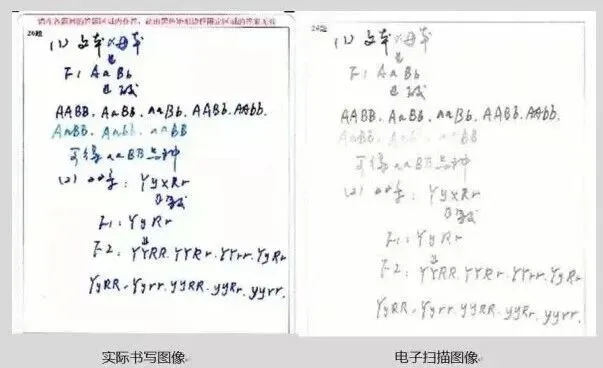 请在各题目的答题区域内作答，超出黑色矩形边框限定区域的答案无效
26题
(1) 父本 × 母本
↓
F1 AaBb
↓
AABB. AaBB. aaBb. AABb. AAbb.
AaBB. Aabb. aaBB
可得 aaBB 品种
(2) : YyxRr
F1: YyRr
↓
F2: YYRR. YYRr. YYrr. YyRr
YyRR. Yyrr. yyRR. yyRr. yyrr.
实际书写图像
26题
(1) 父本 × 母本
↓
F1 AaBb
↓
AABB. AaBB. aaBb. AABb. AAbb.
AaBB. Aabb. aaBB
可得 aaBB 品种
(2) : YyxRr
F1: YyRr
↓
F2: YYRR. YYRr. YYrr. YyRr
YyRR. Yyrr. yyRR. yyRr. yyrr.
电子扫描图像